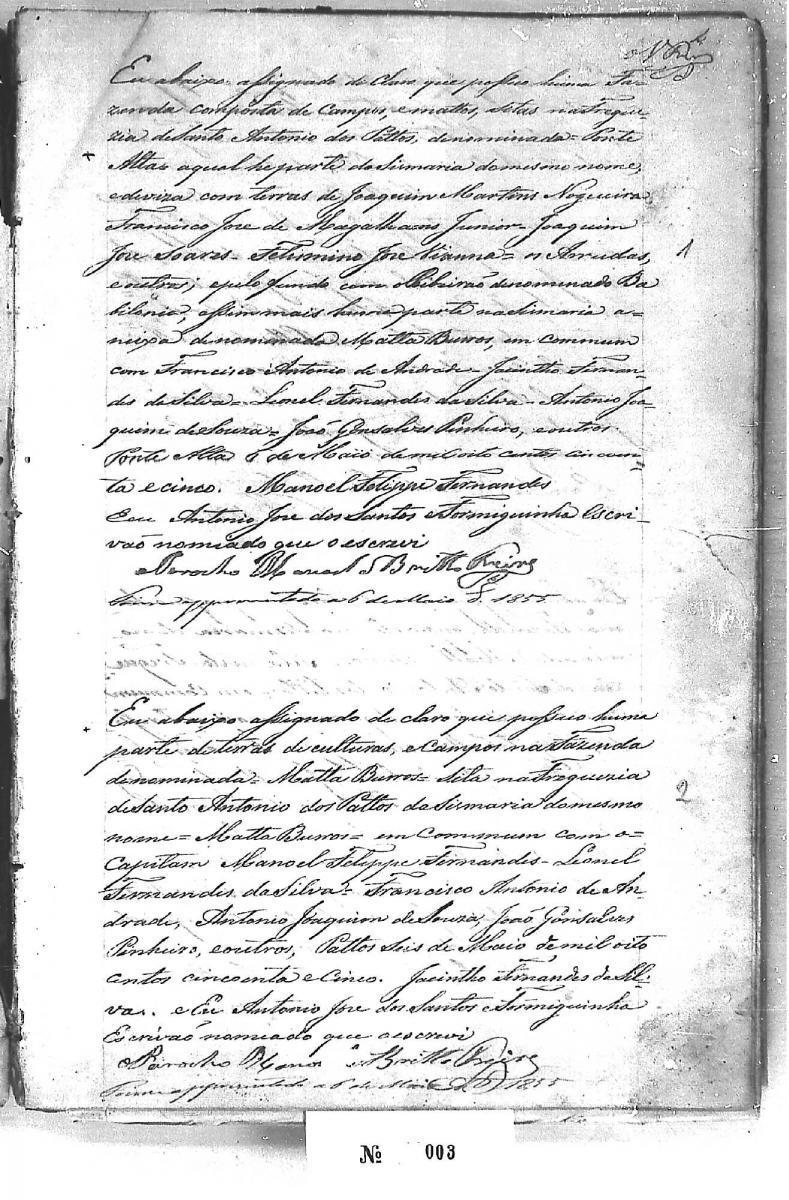 Eu abaixo assignado de claro que possuo huma Fa-
zenda composta de Campos, e mattos, sitas na Fregue-
zia de Santo Antonio dos Pattos, denominada = Ponte
Alta = a qual he parte da Sismaria do mesmo nome,
e deviza com terras de Joaquim Martins Nogueira
Francisco Jose de Magalhaens Junior = Joaquim
Jose Soares = Felismino Jose Vianna = os Arrudas,
e outros; e pelo fundo com Ribeirão denominado Ba
bilonia, assim mais huma parte na Sismaria a=
neixa denominada Matta Burros, em commum
com Francisco Antonio de Andrade = Jacintho Fernan-
des de Silva = Leonel Fernandes da Silva = Antonio Joa-
quim de Souza = João Gonsalves Pinheiro, e outros.
Ponte Alta 6 de Maio de mil oito centos cin coen-
ta e cinco. Manoel Felippe Fernandes
E eu Antonio Jose dos Santos e Formiguinha Escri-
vão nomeado que o escrevi
O Parocho Manoel de Britto Freire
apprezentado a 6 de Maio de 1855.
1
Eu abaixo assignado de claro que possuo huma
parte de terras de culturas, e Campos na Fazenda
denominada = Matta Burros = sita na Freguezia
de Santo Antonio dos Pattos da Sismaria do mesmo
nome = Matta Burros = em Commum com o =
Capitam Manoel Felippe Fernandes = Leonel
Fernandes da Silva = Francisco Antonio de An-
drade, Antonio Joaquim de Souza, João Gonsalves
Pinheiro, e outros, Pattos Seis de Maio de mil oito
centos cincoenta e Cinco. Jacintho Fernandes de Sil-
va. e Eu Antonio Jose dos Santos e Formiguinha
Escrivão nomeado que o escrevi
O Parocho Manoel Britto Freire
apprezentado a 6 de Maio de 1855
2
Nº 003